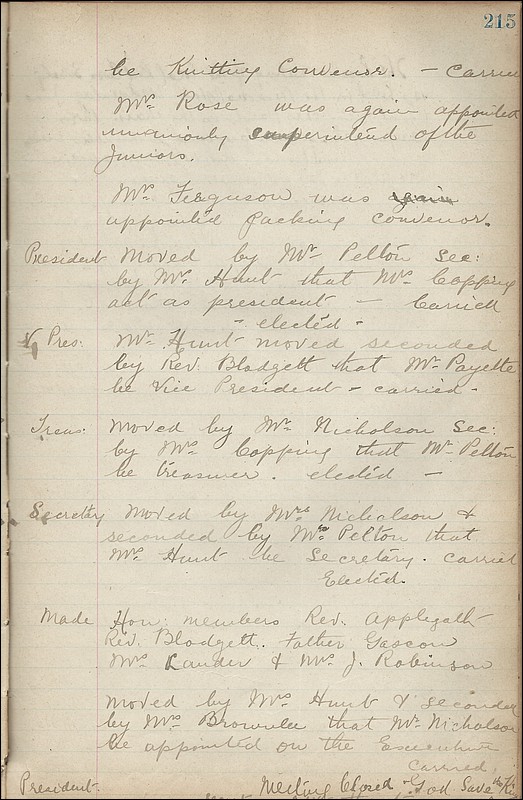 215
be Knitting Convenor. — Carried
Mrs Rose was again appointed
superintend of the
Juniors.
Mrs Ferguson was again
appointed packing convenor.
President Moved by Mr Pelton Sec:
by Mrs Hunt that Mrs Copping
act as president — Carried
- elected -
V Pres: Mr Hunt moved seconded
by Rev. Blodgett that Mr Payette
be Vice President - carried -
Treas: Moved by Mr Nicholson Sec:
by Mrs Copping that Mr Pelton
be treasurer. elected —
Secretay Moved by Mrs Nicholson &
seconded by Mrs Pelton that
Mrs Hunt be Secretary. Carried
Elected.
Made Hon: members Rev. Applegath
Rev. Blodgett. Father Gascon
Mrs Lauder & Mrs J. Robinson
Moved by Mrs Hunt & seconded
by Mrs Brownlee that Mr Nicholson
be appointed on the Executive
Carried.
President. Meeting Closed - God Save the Ki